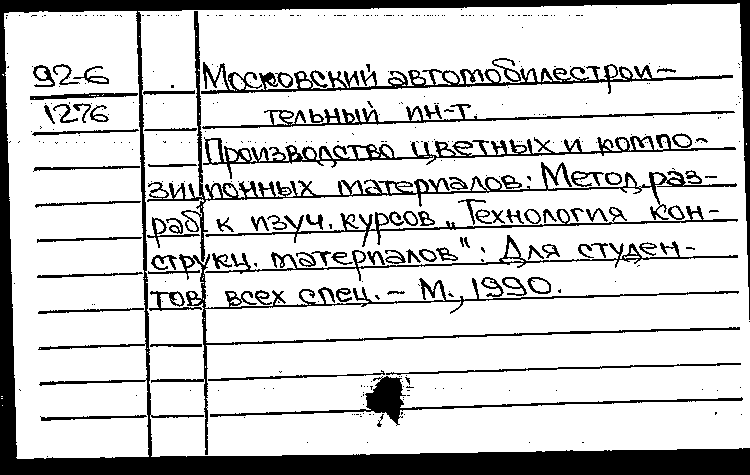 92-6 Московский автомобилестрои-
1276 тельный ин-т.
Производство цветных и компо-
зиционных материалов: Метод. раз-
раб к изуч. курсов „Технология кон-
струкц. материалов": Для студен-
тов всех спец. – М., 1990.